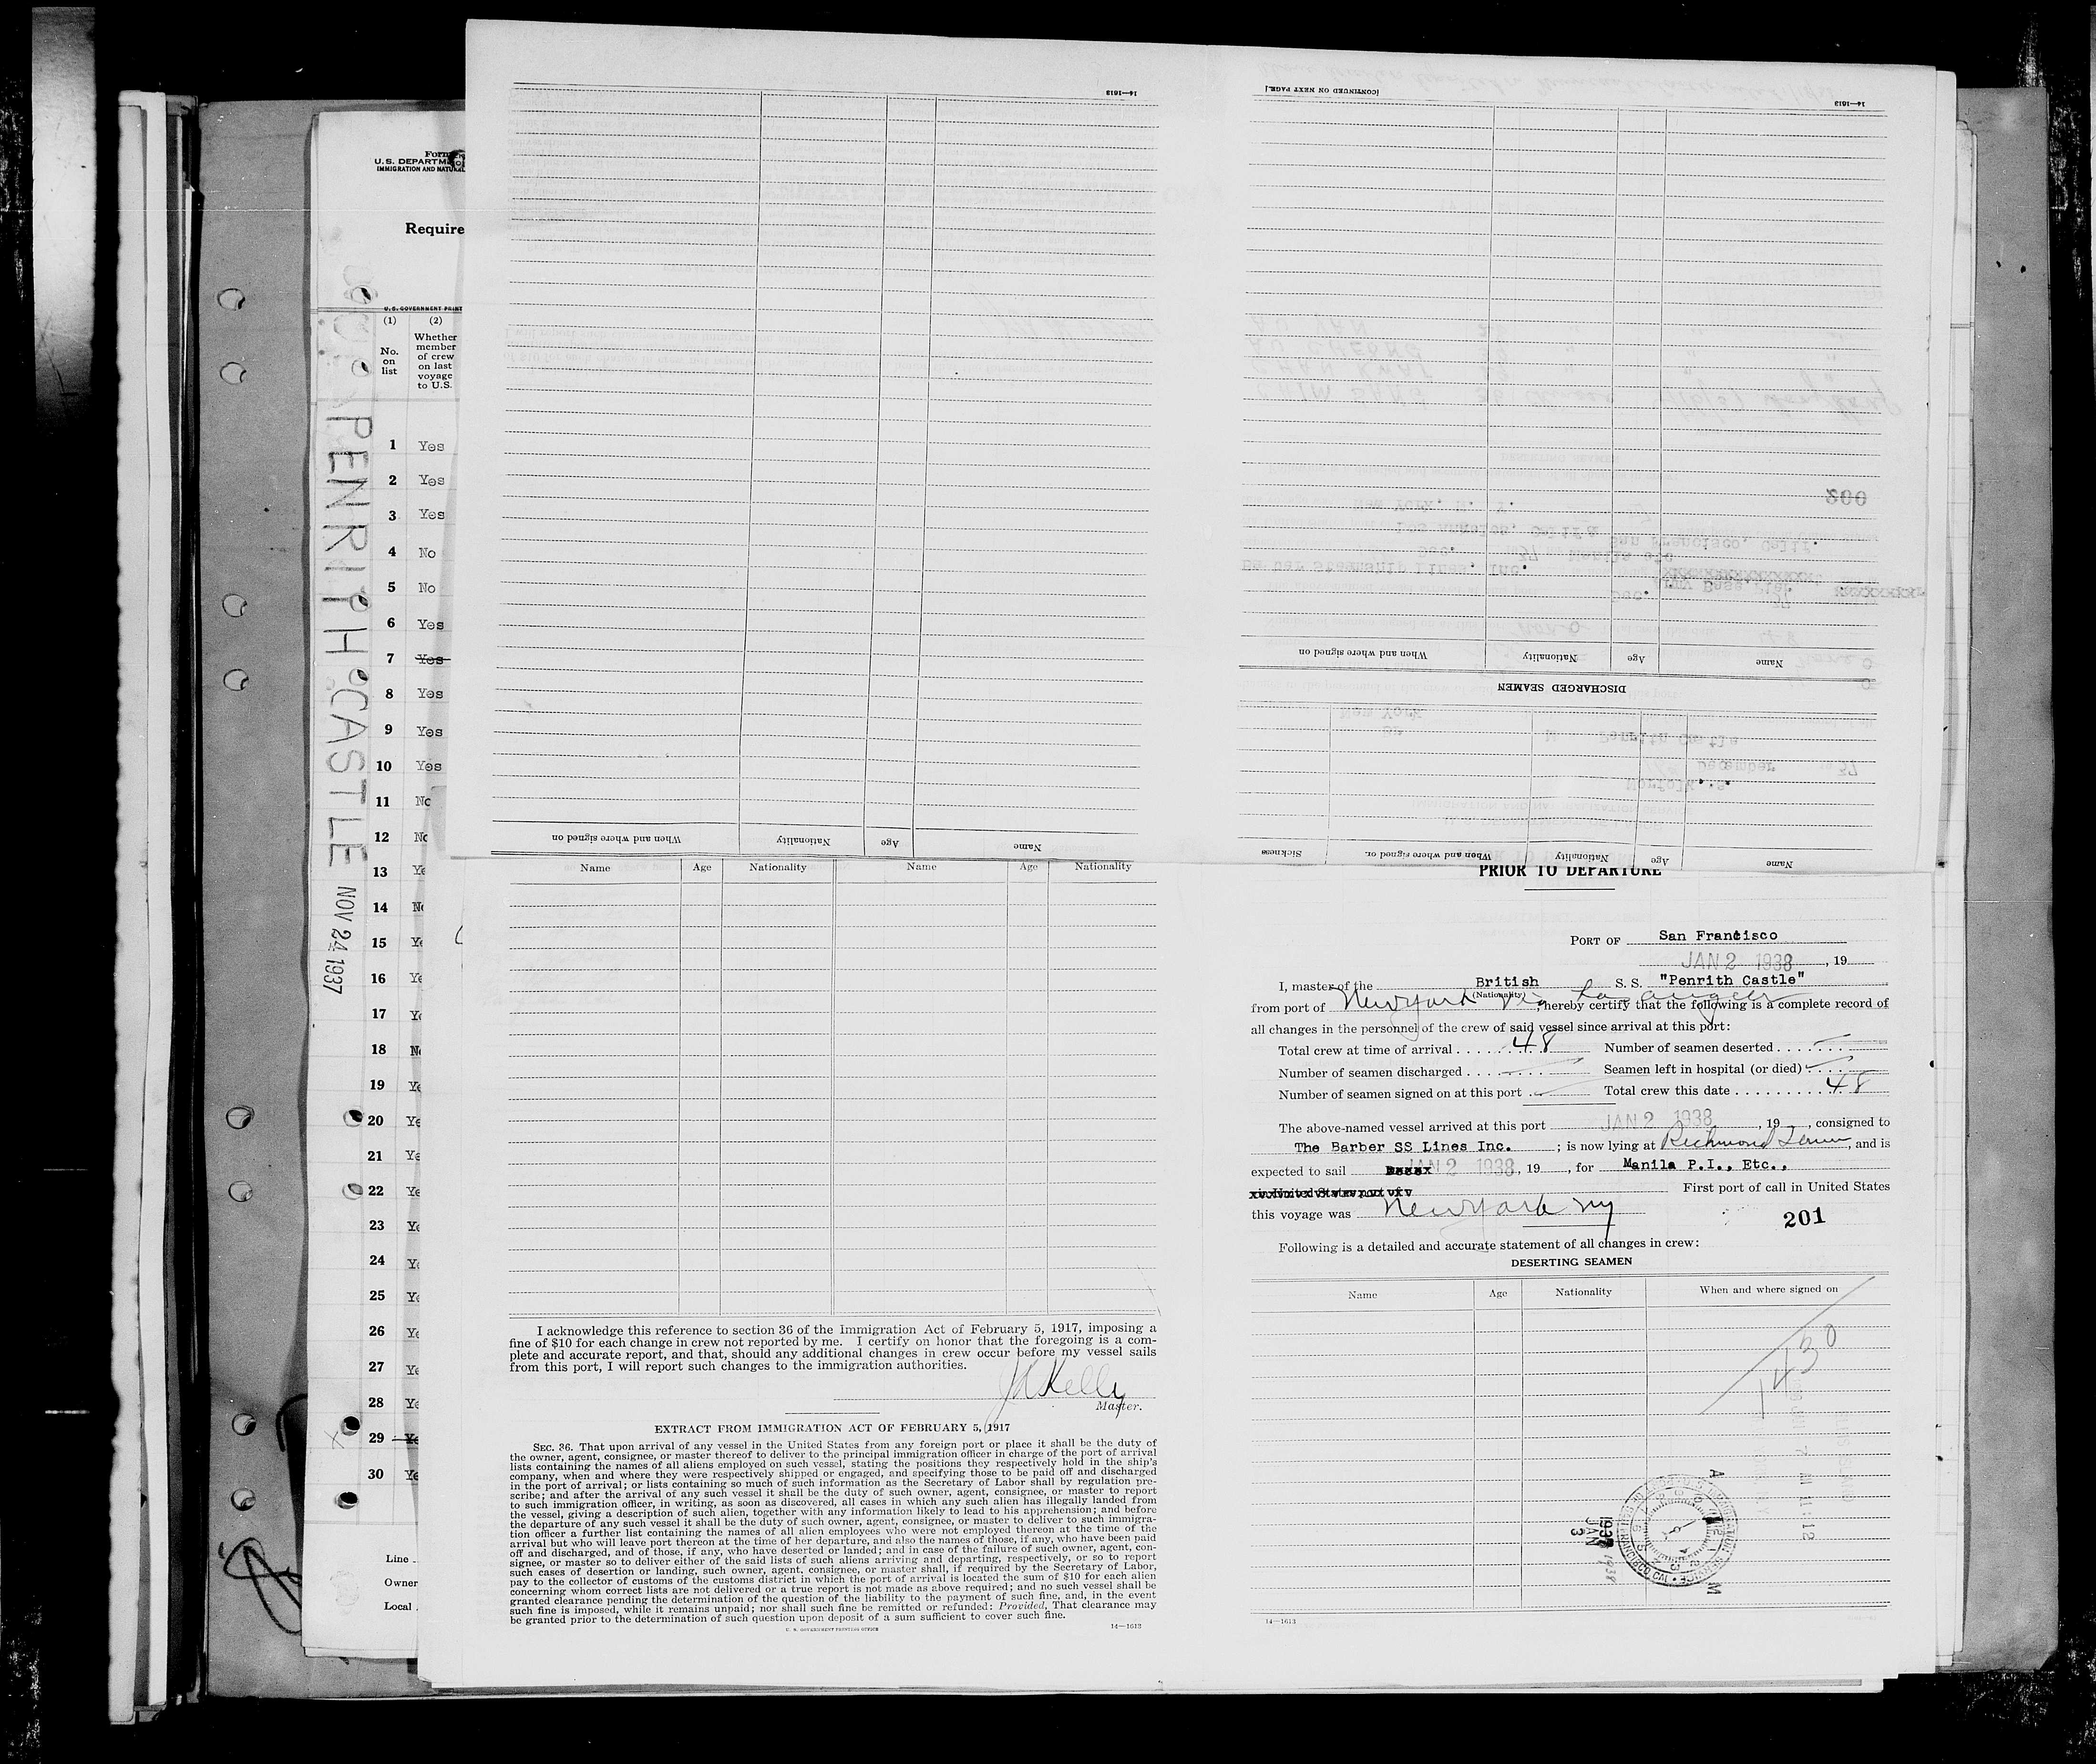 Form
U.S. DEPARTM
IMMIGRATION AND NATURAL
Require
U.S. GOVERNMENT PRINT
(1) (2)
No. on list
Whether member of crew on last voyage to U.S.
1 Yes
2 Yes
3 Yes
4 No
5 No
6 Yes
7 Yes
8 Yes
9 Yes
10 Yes
11 No
12 No
13 Ye
14 No
15 Ye
16 Ye
17 Ye
18 No
19 Ye
20 Ye
21 Ye
22 Ye
23 Ye
24 Ye
25 Ye
26 Ye
27 Ye
28 Ye
29 Ye
30 Ye
Line
Owner
Local
PENRITH CASTLE NOV 24 1937
14—1613
When and where signed on Nationality Age Name
14—1613
[CONTINUED ON NEXT PAGE]
200
When and where signed on Nationality Age Name
DISCHARGED SEAMEN
Sickness When and where signed or. Nationality Age Name
Name Age Nationality Name Age Nationality
I acknowledge this reference to section 36 of the Immigration Act of February 5, 1917, imposing a
fine of $10 for each change in crew not reported by me. I certify on honor that the foregoing is a com-
plete and accurate report, and that, should any additional changes in crew occur before my vessel sails
from this port, I will report such changes to the immigration authorities.
Kelly
Master.
EXTRACT FROM IMMIGRATION ACT OF FEBRUARY 5, 1917
SEC. 36. That upon arrival of any vessel in the United States from any foreign port or place it shall be the duty of
the owner, agent, consignee, or master thereof to deliver to the principal immigration officer in charge of the port of arrival
lists containing the names of all aliens employed on such vessel, stating the positions they respectively hold in the ship's
company, when and where they were respectively shipped or engaged, and specifying those to be paid off and discharged
in the port of arrival; or lists containing so much of such information as the Secretary of Labor shall by regulation pre-
scribe; and after the arrival of any such vessel it shall be the duty of such owner, agent, consignee, or master to report
to such immigration officer, in writing, as soon as discovered, all cases in which any such alien has illegally landed from
the vessel, giving a description of such alien, together with any information likely to lead to his apprehension; and before
the departure of any such vessel it shall be the duty of such owner, agent, consignee, or master to deliver to such immigra-
tion officer a further list containing the names of all alien employees who were not employed thereon at the time of the
arrival but who will leave port thereon at the time of her departure, and also the names of those, if any, who have been paid
off and discharged, and of those, if any, who have deserted or landed; and in case of the failure of such owner, agent, con-
signee, or master so to deliver either of the said lists of such aliens arriving and departing, respectively, or so to report
such cases of desertion or landing, such owner, agent, consignee, or master shall, if required by the Secretary of Labor,
pay to the collector of customs of the customs district in which the port of arrival is located the sum of $10 for each alien
concerning whom correct lists are not delivered or a true report is not made as above required; and no such vessel shall be
granted clearance pending the determination of the question of the liability to the payment of such fine, and, in the event
such fine is imposed, while it remains unpaid; nor shall such fine be remitted or refunded: Provided, That clearance may
be granted prior to the determination of such question upon deposit of a sum sufficient to cover such fine.
U. S. GOVERNMENT PRINTING OFFICE 14—1613
PRIOR TO DEPARTURE
PORT OF San Francisco
JAN 2 1938, 19
I, master of the British S. S. "Penrith Castle"
(Nationality)
from port of New York via Los Angeles, hereby certify that the following is a complete record of
all changes in the personnel of the crew of said vessel since arrival at this port:
Total crew at time of arrival 48 Number of seamen deserted
Number of seamen discharged Seamen left in hospital (or died)
Number of seamen signed on at this port Total crew this date 48
The above-named vessel arrived at this port JAN 2 1938, 19, consigned to
The Barber SS Lines Inc. ; is now lying at Richmond, and is
expected to sail JAN 2 1938, 19, for Manila P.I., Etc.,
First port of call in United States
this voyage was New York NY
201
Following is a detailed and accurate statement of all changes in crew:
DESERTING SEAMEN
Name Age Nationality When and where signed on
1430
1938 JAN 3
A M
14—1613